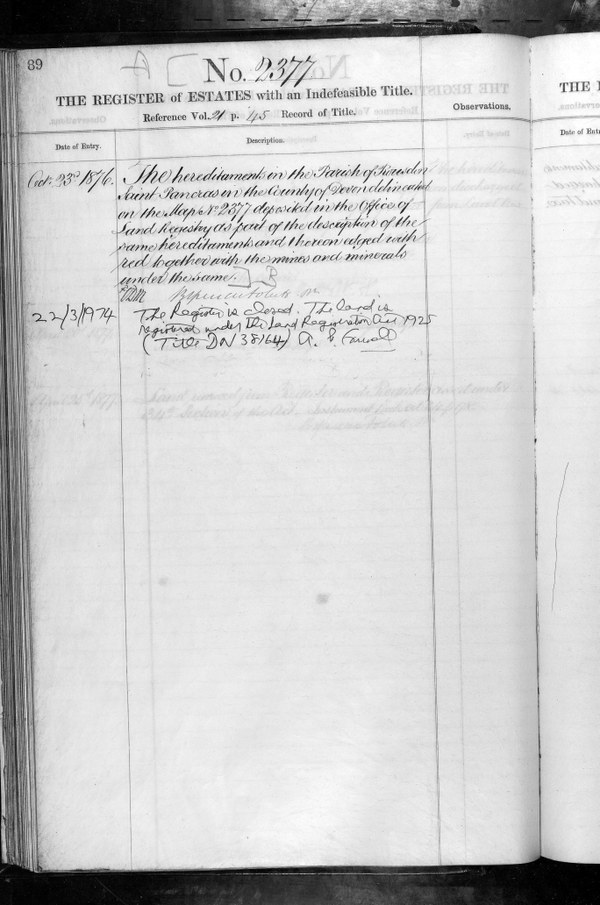 89
A [
No. 2377
THE REGISTER of ESTATES with an Indefeasible Title.
Reference Vol. 21 p. 45 Record of Title.
Observations.
Date of Entry.
Description.
Oct. 23rd 1876.
The hereditaments in the Parish of Rousdon
Saint Pancras in the County of Devon delineated
on the Map No 2377 deposited in the Office of
Land Registry as part of the description of the
same hereditaments and thereon edged with
red together with the mines and minerals
under the same. ] B
22/3/1974
The Register is closed. The land is
registered under the Land Registration Act 1925
(Title DN 38164) A.
THE
Date of Entr